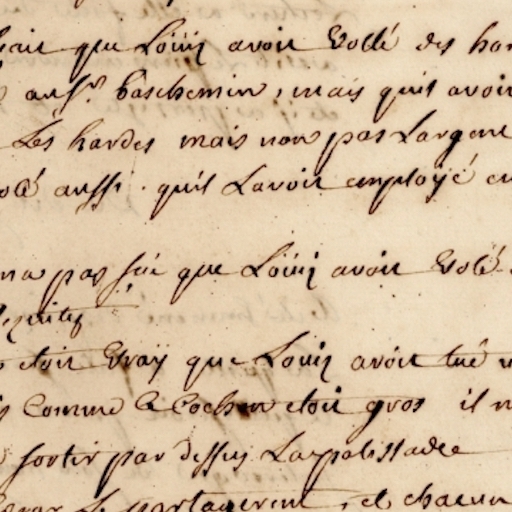 sait que Loüis avoit Vollé des har
au Sr. baschemin, mais quil avoit
Les hardes mais non pas Largent
volé aussi. qu'il Lavoit employé en
na pas sçu que Loüis avoit Volé
etoit Vray que Louis avoit tué
Comme Ce Cochon etoit gros il n
sortir par dessus La palissade
Le partagerent, et chacun